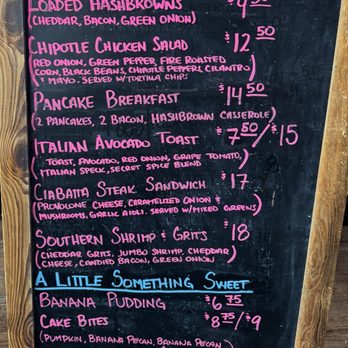 LOADED HASHBROWNS $9 50
(CHEDDAR, BACON, GREEN ONION)
CHIPOTLE CHICKEN SALAD $12 50
(RED ONION, GREEN PEPPER, FIRE ROASTED
CORN, BLACK BEANS, CHIPOTLE PEPPER, CILANTRO
+ MAYO. SERVED W/TORTILLA CHIPS)
PANCAKE BREAKFAST $14 50
(2 PANCAKES, 2 BACON, HASHBROWN CASSEROLE)
ITALIAN AVOCADO TOAST $7 50/$15
(TOAST, AVOCADO, RED ONION, GRAPE TOMATO,
ITALIAN SPECK, SECRET SPICE BLEND)
CIABATTA STEAK SANDWICH $17
(PROVOLONE CHEESE, CARAMELIZED ONION +
MUSHROOMS, GARLIC AIOLI. SERVED W/MIXED GREENS)
SOUTHERN SHRIMP & GRITS $18
(CHEDDAR GRITS, JUMBO SHRIMP, CHEDDAR
CHEESE, CANDIED BACON, GREEN ONION)
A LITTLE SOMETHING SWEET
BANANA PUDDING $6 75
CAKE BITES $8 75/$9
(PUMPKIN, BANANA PECAN, BANANA PECAN)